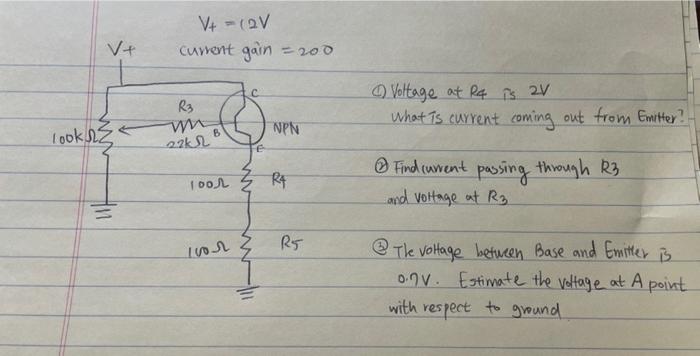 V+ = 12V
V+
current gain = 200
C
R3
B
NPN
100kΩ
22kΩ
E
100Ω
R4
100Ω
R5
① Voltage at R4 is 2V
What is current coming out from Emitter?
② Find current passing through R3
and voltage at R3
③ The voltage between Base and Emitter is
0.7V. Estimate the voltage at A point
with respect to ground